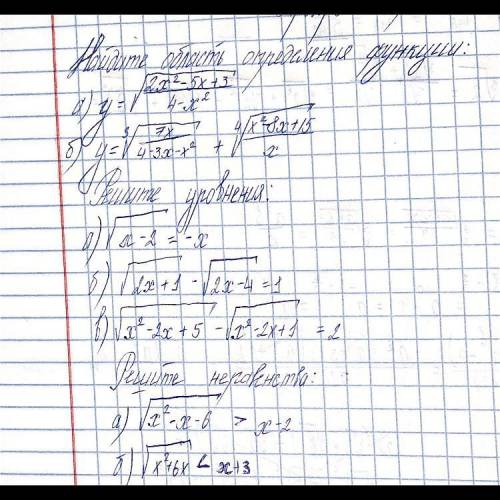 Найдите область определения функции:
а) y = √((2x²-5x+3)/(4-x²))
б) y = ³√(7x/(4-3x-x²)) + ⁴√((x²-8x+15)/x)
Решите уровнения:
а) √(x-2) = -x
б) √(2x+1) - √(2x-4) = 1
в) √(x²-2x+5) - √(x²-2x+1) = 2
Решите неравенства:
а) √(x²-x-6) > x-2
б) √(x²+6x) < x+3